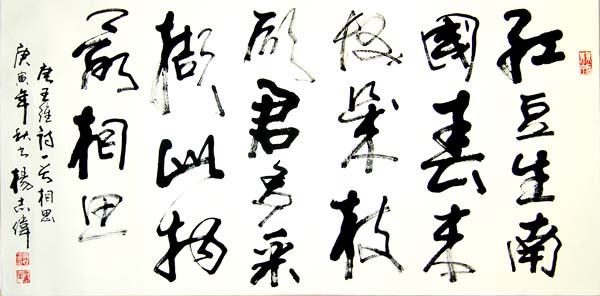 紅豆生南
國春来
發幾枝
願君多采
擷此物
最相思
唐王維詩一首相思
庚寅年秋 楊志偉